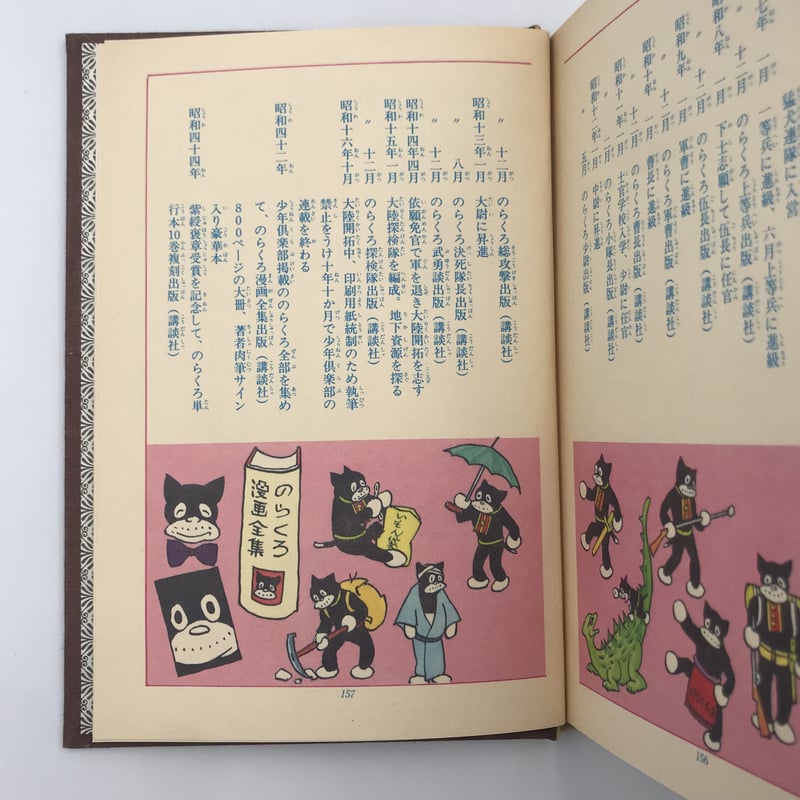 猛犬連隊に入営
七年 一月 一等兵に進級、六月上等兵に進級
〃 十二月 のらくろ上等兵出版(講談社)
昭和八年 一月 下士志願して伍長に任官
〃 十二月 のらくろ伍長出版(講談社)
昭和九年 一月 軍曹に進級
〃 十二月 のらくろ軍曹出版(講談社)
昭和十年 一月 曹長に進級
〃 十二月 のらくろ曹長出版(講談社)
昭和十一年 一月 士官学校入学、少尉に任官
〃 五月 のらくろ小隊長出版(講談社)
昭和十二年 一月 中尉に昇進
のらくろ少尉出版(講談社)
156
〃 十二月 のらくろ総攻撃出版(講談社)
昭和十三年一月 大尉に昇進
〃 八月 のらくろ決死隊長出版(講談社)
〃 十二月 のらくろ武勇談出版(講談社)
昭和十四年四月 依願免官で軍を退き大陸開拓を志す
昭和十五年一月 大陸探検隊を編成。地下資源を探る
〃 十二月 のらくろ探検隊出版(講談社)
昭和十六年十月 大陸開拓中、印刷用紙統制のため執筆
禁止をうけ十年十か月で少年倶楽部の
連載を終わる
昭和四十二年 少年倶楽部掲載ののらくろ全部を集め
て、のらくろ漫画全集出版(講談社)
800ページの大冊、著者肉筆サイン
入り豪華本
昭和四十四年 紫綬褒章受賞を記念して、のらくろ単
行本10巻複刻出版(講談社)
のらくろ
漫画全集
157